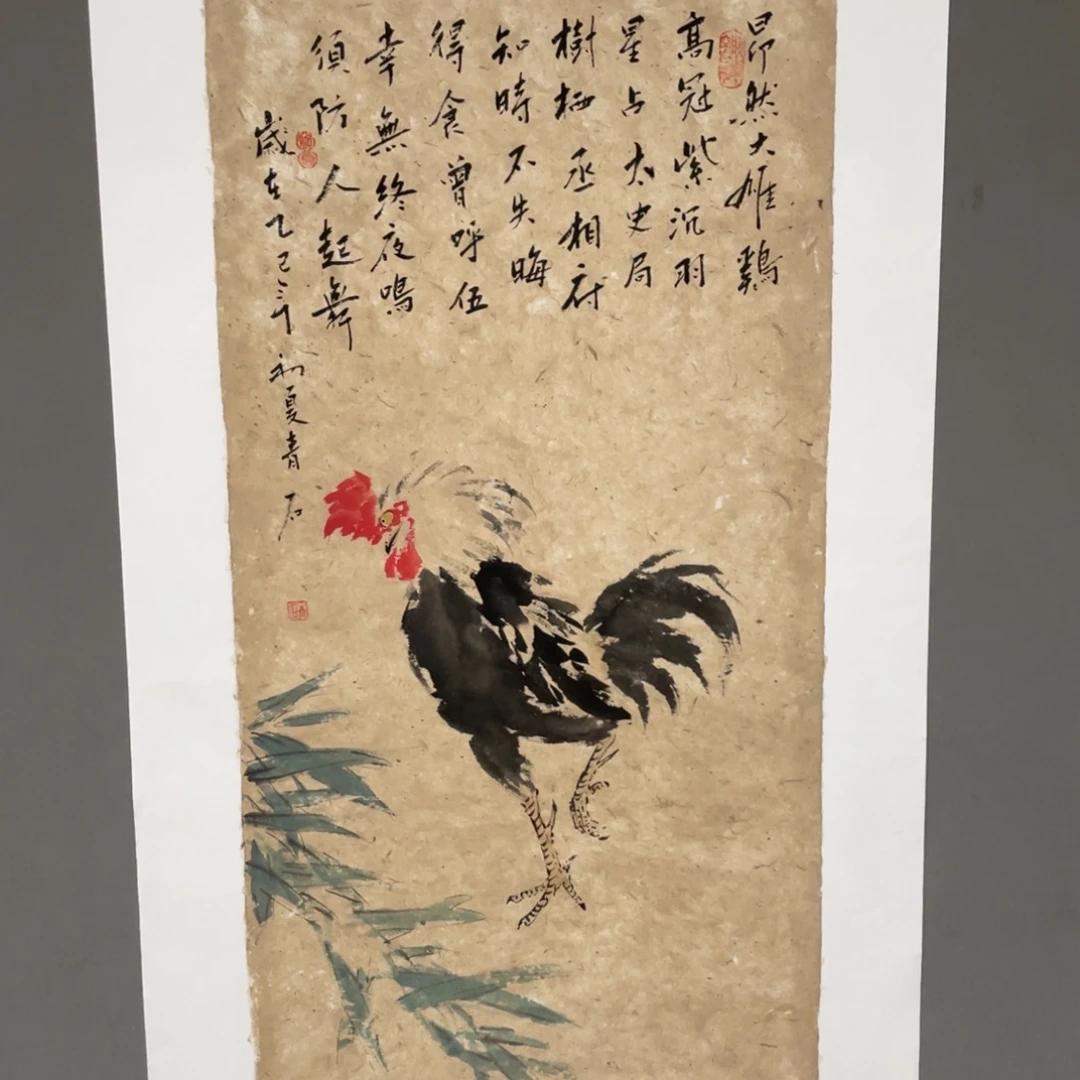 昂然大雄鷄
高冠紫沉羽
星占太史局
樹栖丞相府
知時不失晦
得食曾呼伍
幸無終夜鳴
須防人起舞
歲在乙巳年初夏青石